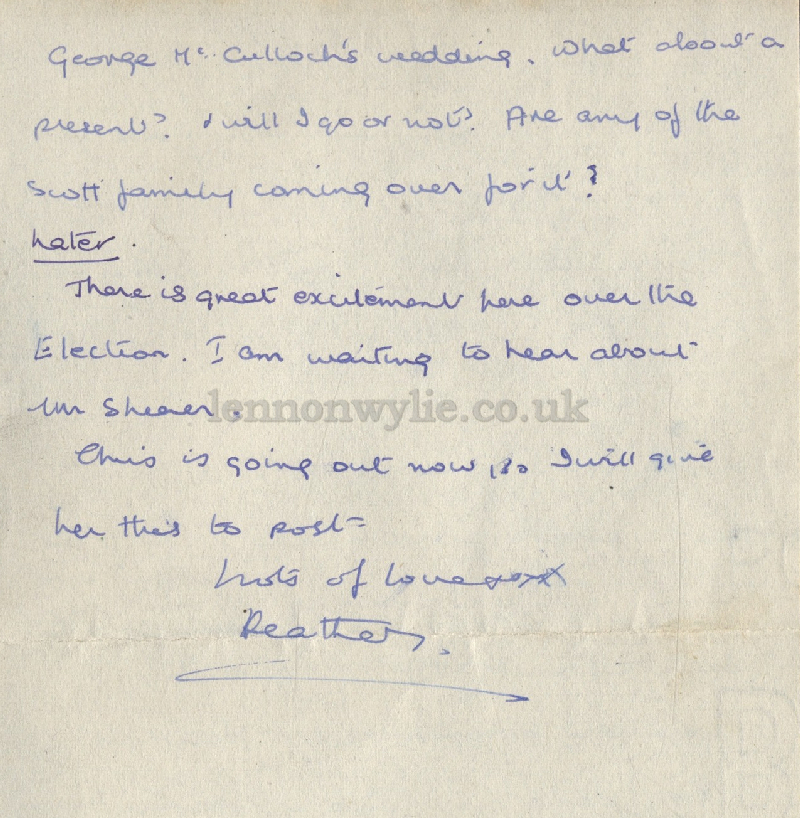 George Mc. Culloch's wedding. What about a
present? & will I go or not? Are any of the
Scott family coming over for it?
Later.
There is great excitement here over the
Election. I am waiting to hear about
Mr Shearer.
lennonwylie.co.uk
Chris is going out now, so I will give
her this to post=
Lots of love xoxx
Heather.